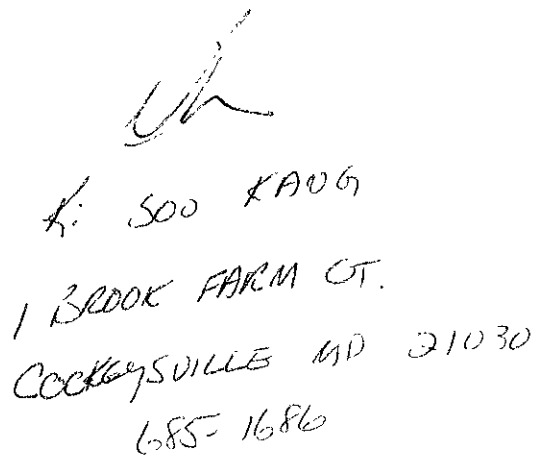 Ki SOO KANG
1 BROOK FARM CT.
COCKEYSVILLE MD 21030
685-1686